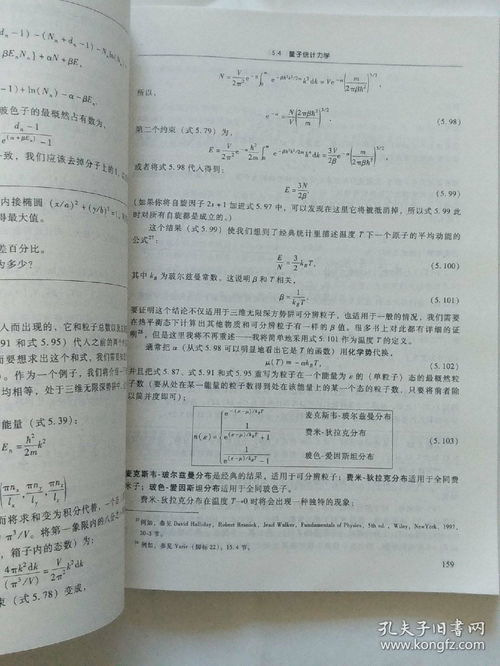 d_n - 1) - (N_n + d_n - 1) - N_n ln(
- βE_nN_n] + αN + βE,
- 1) + ln(N_n) - α - βE_n,
玻色子的最概然占有数为,
d_n - 1
e^{(α+βE_n)}
致,我们应该去掉分子上的1,
内接椭圆 (x/a)² + (y/b)² = 1,
得最大值。
差百分比。
为多少?
人而出现的,它和粒子总数以及
91 和式 5.95)代入之前的两个
而要想求出这个和式,我们需
。作为一个例子,我们将介绍
均相等,处于三维无限深势阱
能量(式 5.39):
E_n = ħ²/2m k²
(πn_x/l_x, πn_y/l_y, πn_z/l_z)
而将求和变为积分代替,一个
π³/V。将第一象限内的八分之
箱子内的态数)为:
4πk²dk/(π³/V) = V/2π² k²dk
束(式 5.78)变成,
5.4 量子统计力学
N = V/2π² e^{-α} ∫₀^∞ e^{-βħ²k²/2m} k² dk = Ve^{-α} (m/2πβħ²)^{3/2},
所以,
e^{-α} = N/V (2πβħ²/m)^{3/2}. (5.98)
第二个约束(式 5.79)为,
E = V/2π² e^{-α} ħ²/2m ∫₀^∞ e^{-βħ²k²/2m} k⁴ dk = 3V/2β e^{-α} (m/2πβħ²)^{3/2},
或者将式 5.98 代入得到:
E = 3N/2β (5.99)
(如果你将自旋因子 2s+1 加进式 5.97 中,可以发现在这里它将被抵消掉,所以式 5.99 此
时对所有自旋都是成立的。)
这个结果(式 5.99)使我们想到了经典统计里描述温度 T 下一个原子的平均动能的
公式²⁷:
E/N = 3/2 k_BT, (5.100)
其中 k_B 为玻尔兹曼常数。这说明 β 和 T 相关,
β = 1/k_BT. (5.101)
要证明这个结论不仅适用于三维无限深方势阱可分辨粒子,也适用于一般的情况,我们需要
在热平衡态下计算出其他物质和可分辨粒子有一样的 β 值。很多书上对此都有详细的证
明²⁸,但是这里我将不再重述——我将简单地采用式 5.101 作为温度 T 的定义。
通常把 α(从式 5.98 可以明显地看出它是 T 的函数)用化学势代换,
μ(T) ≡ -αk_BT, (5.102)
并且把式 5.87、式 5.91 和式 5.95 重写为粒子在一个能量为 ε 的(单粒子)态的最概然粒
子数(要从处在某一能量的粒子数得到处在该能量上的某一个态的粒子数,只要将前者除
以简并度即可);
n(ε) =
1/e^{(ε-μ)/k_BT} 麦克斯韦-玻尔兹曼分布
1/(e^{(ε-μ)/k_BT} + 1) 费米-狄拉克分布
1/(e^{(ε-μ)/k_BT} - 1) 玻色-爱因斯坦分布
(5.103)
麦克斯韦-玻尔兹曼分布是经典的结果,适用于可分辨粒子;费米-狄拉克分布适用于全同费
米子;玻色-爱因斯坦分布适用于全同玻色子。
费米-狄拉克分布在温度 T→0 时将会出现一种独特的现象:
²⁷ 例如,参见 David Halliday, Robert Resnick, Jearl Walker, Fundamentals of Physics, 5th ed., Wiley, New York, 1997,
20-5 节。
²⁸ 例如,参见 Yariv(脚标 22),15.4 节。
159
孔夫子旧书网
www.kongfz.com